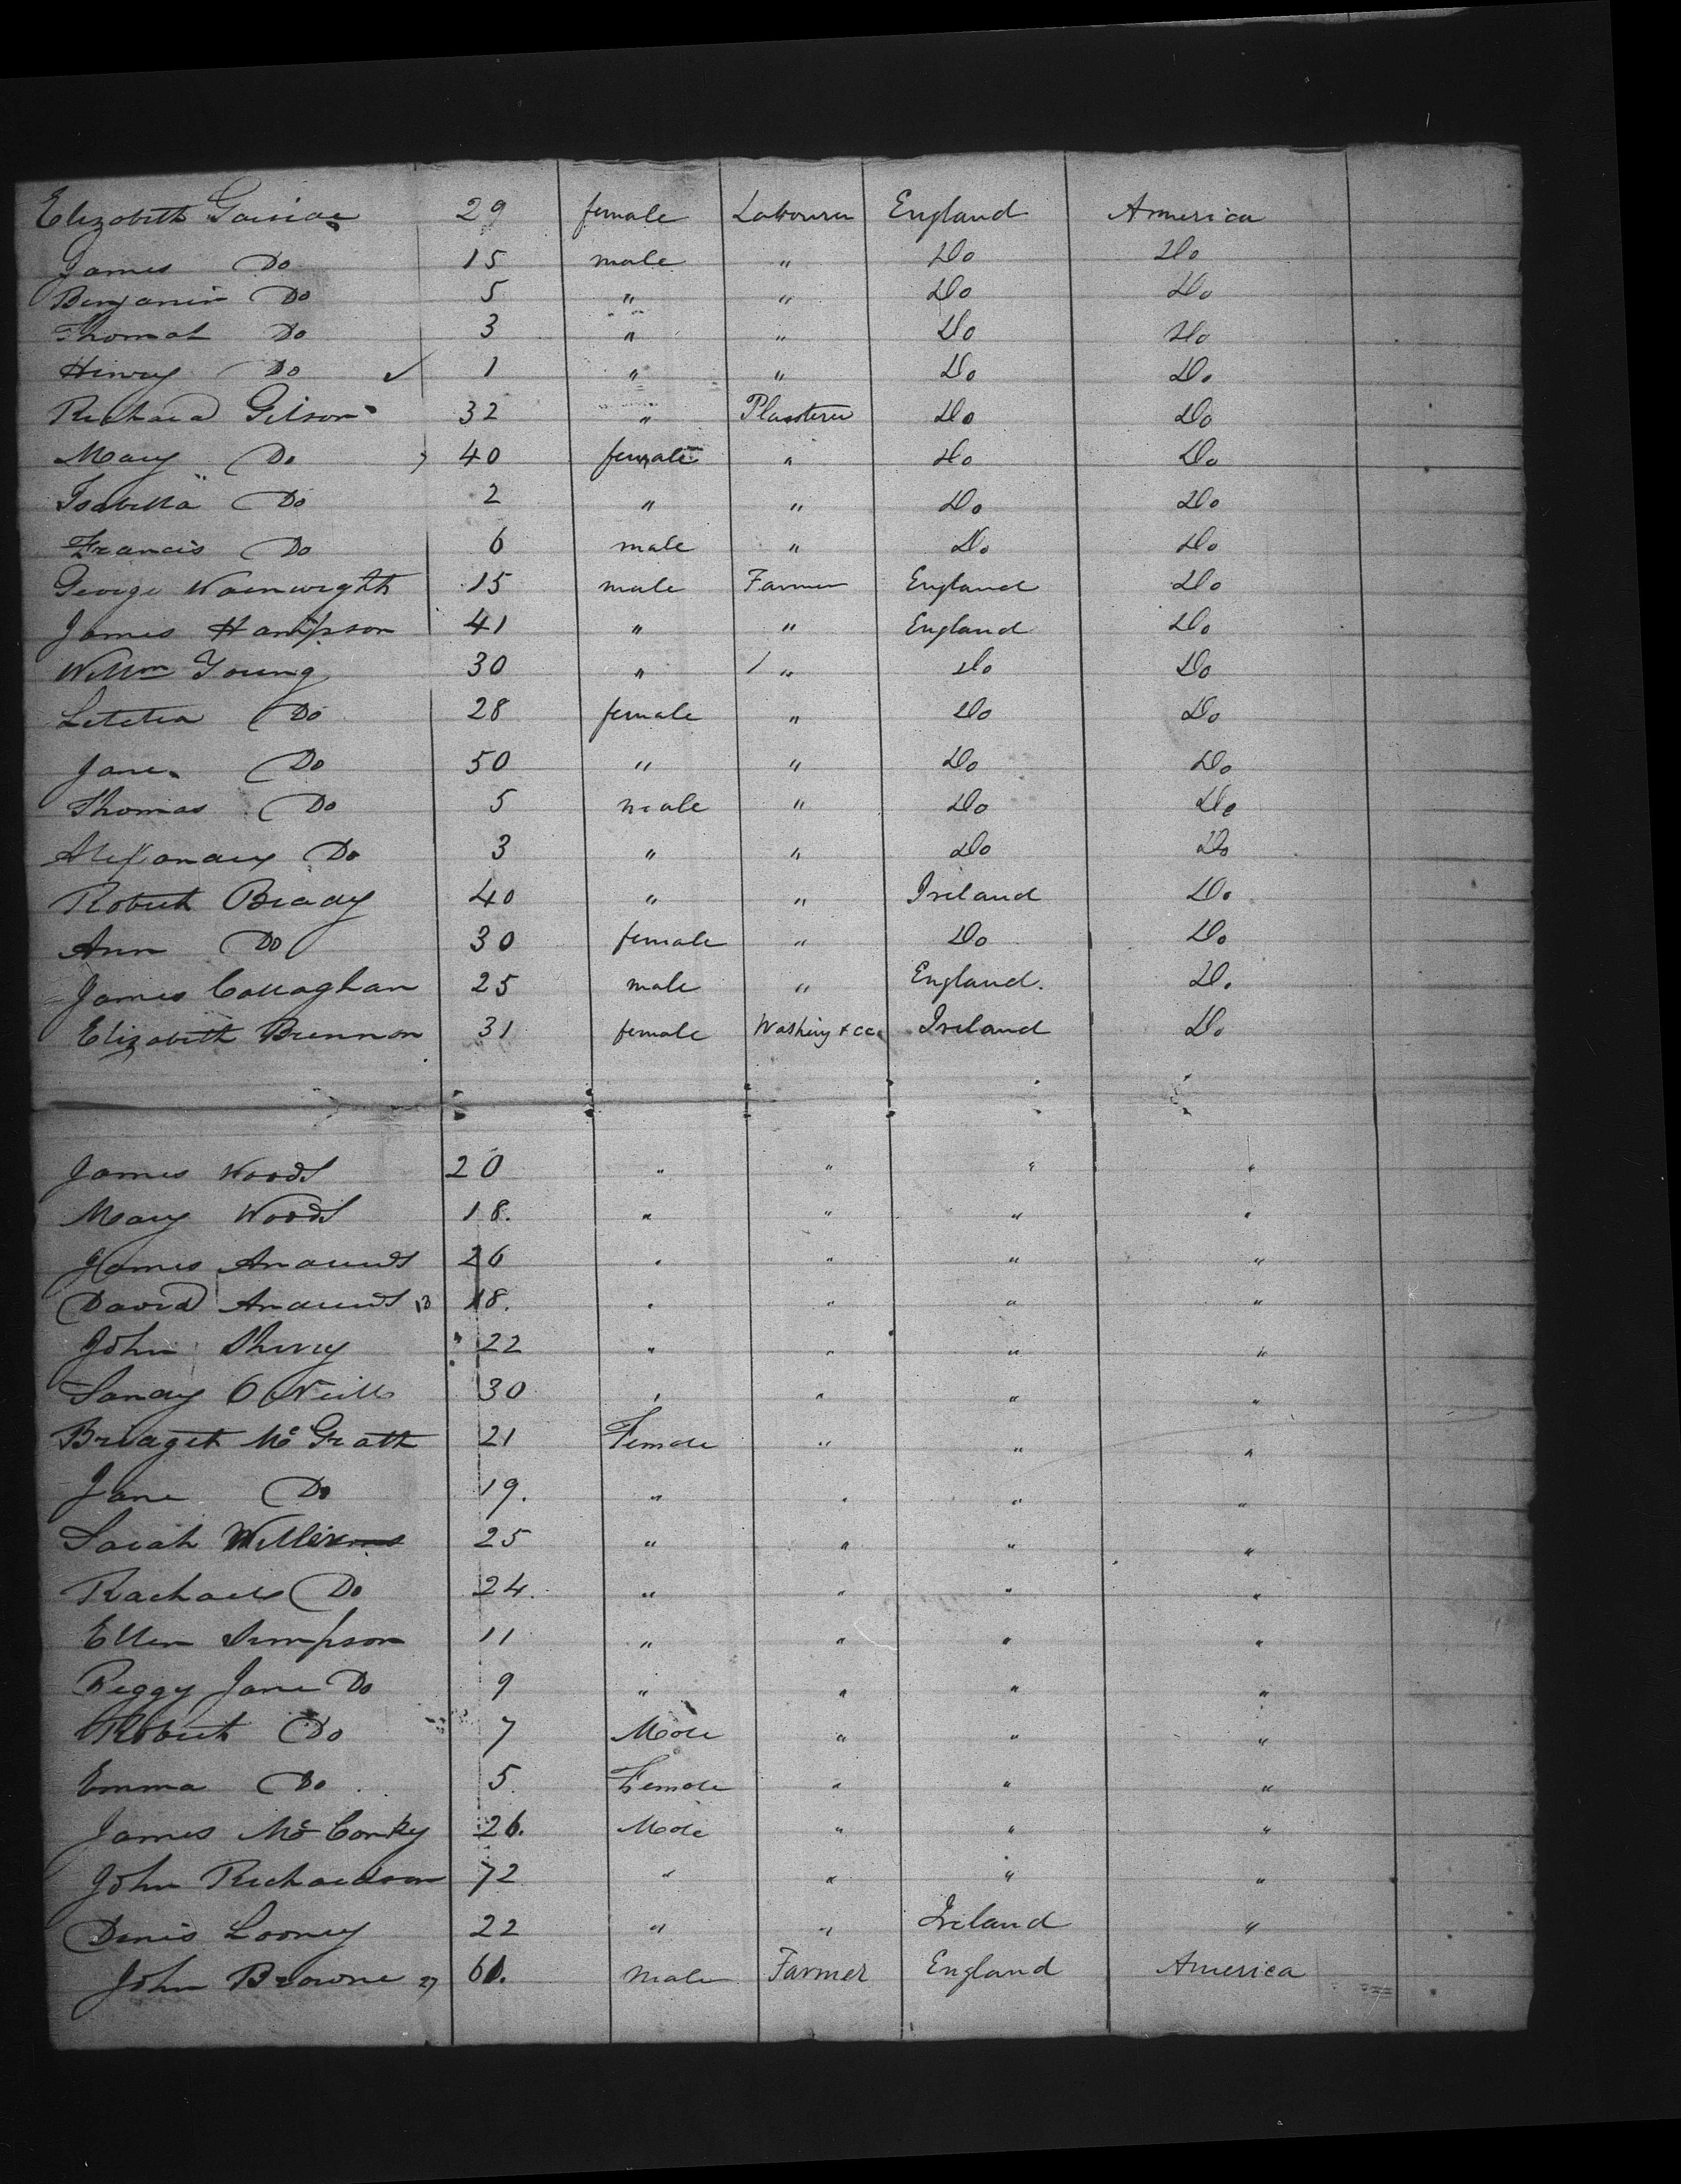 Elizabeth 29 female Labourer England America
James Do 15 male " Do Do
Benjamin Do 5 " " Do Do
Thomas Do 3 " " Do Do
Henry Do 1 " " Do Do
Richard Gilson 32 " Plasterer Do Do
Mary Do 40 female " Do Do
Isabella Do 2 " " Do Do
Francis Do 6 male " Do Do
George Wainwright 15 male Farmer England Do
James Hampson 41 " " England Do
Willm Young 30 " " Do Do
Letetia Do 28 female " Do Do
Jane Do 50 " " Do Do
Thomas Do 5 male " Do Do
Alexander Do 3 " " Do Do
Robert Brady 40 " " Ireland Do
Ann Do 30 female " Do Do
James Callaghan 25 male " England. Do
Elizabeth Brennon 31 female Washing &cc Ireland Do
James Woods 20 " " " "
Mary Woods 18. " " " "
James Andrews 26 " " " "
David Andrews 13 18. " " " "
John Sherry 22 " " " "
Sandy O'Neill 30 " " " "
Bridget McGrath 21 Female " " "
Jane Do 19. " " " "
Sarah 25 " " " "
Rachael Do 24. " " " "
Ellen Simpson 11 " " " "
Peggy Jane Do 9 " " " "
Robert Do 7 Male " " "
Emma Do 5. Female " " "
James McConky 26. Male " " "
John Richardson 72 " " " "
Denis Looney 22 " " Ireland "
John Browne 27 61. male Farmer England America